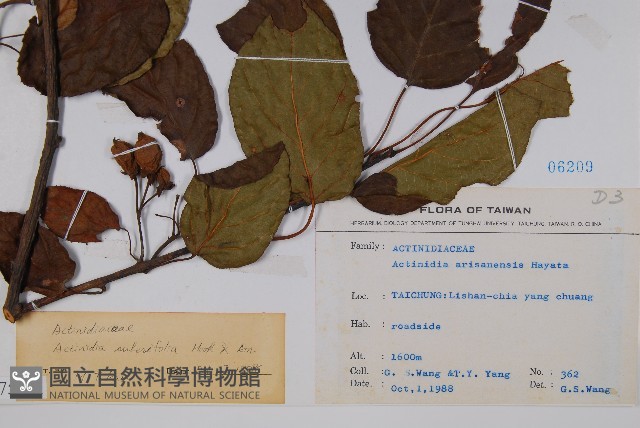 06209
D3
FLORA OF TAIWAN
HERBARIUM, BIOLOGY DEPARTMENT OF TUNGHAI UNIVERSITY, TAICHUNG, TAIWAN, R. O. CHINA
Family: ACTINIDIACEAE
Actinidia arisanensis Hayata
Loc: TAICHUNG:Lishan-chia yang chuang
Hab: roadside
Alt: 1600m
Coll: G. S.Wang &T.Y. Yang No: 362
Date: Oct,1,1988 Det: G.S.Wang
Actinidiaceae
Actinidia
國立自然科學博物館
NATIONAL MUSEUM OF NATURAL SCIENCE